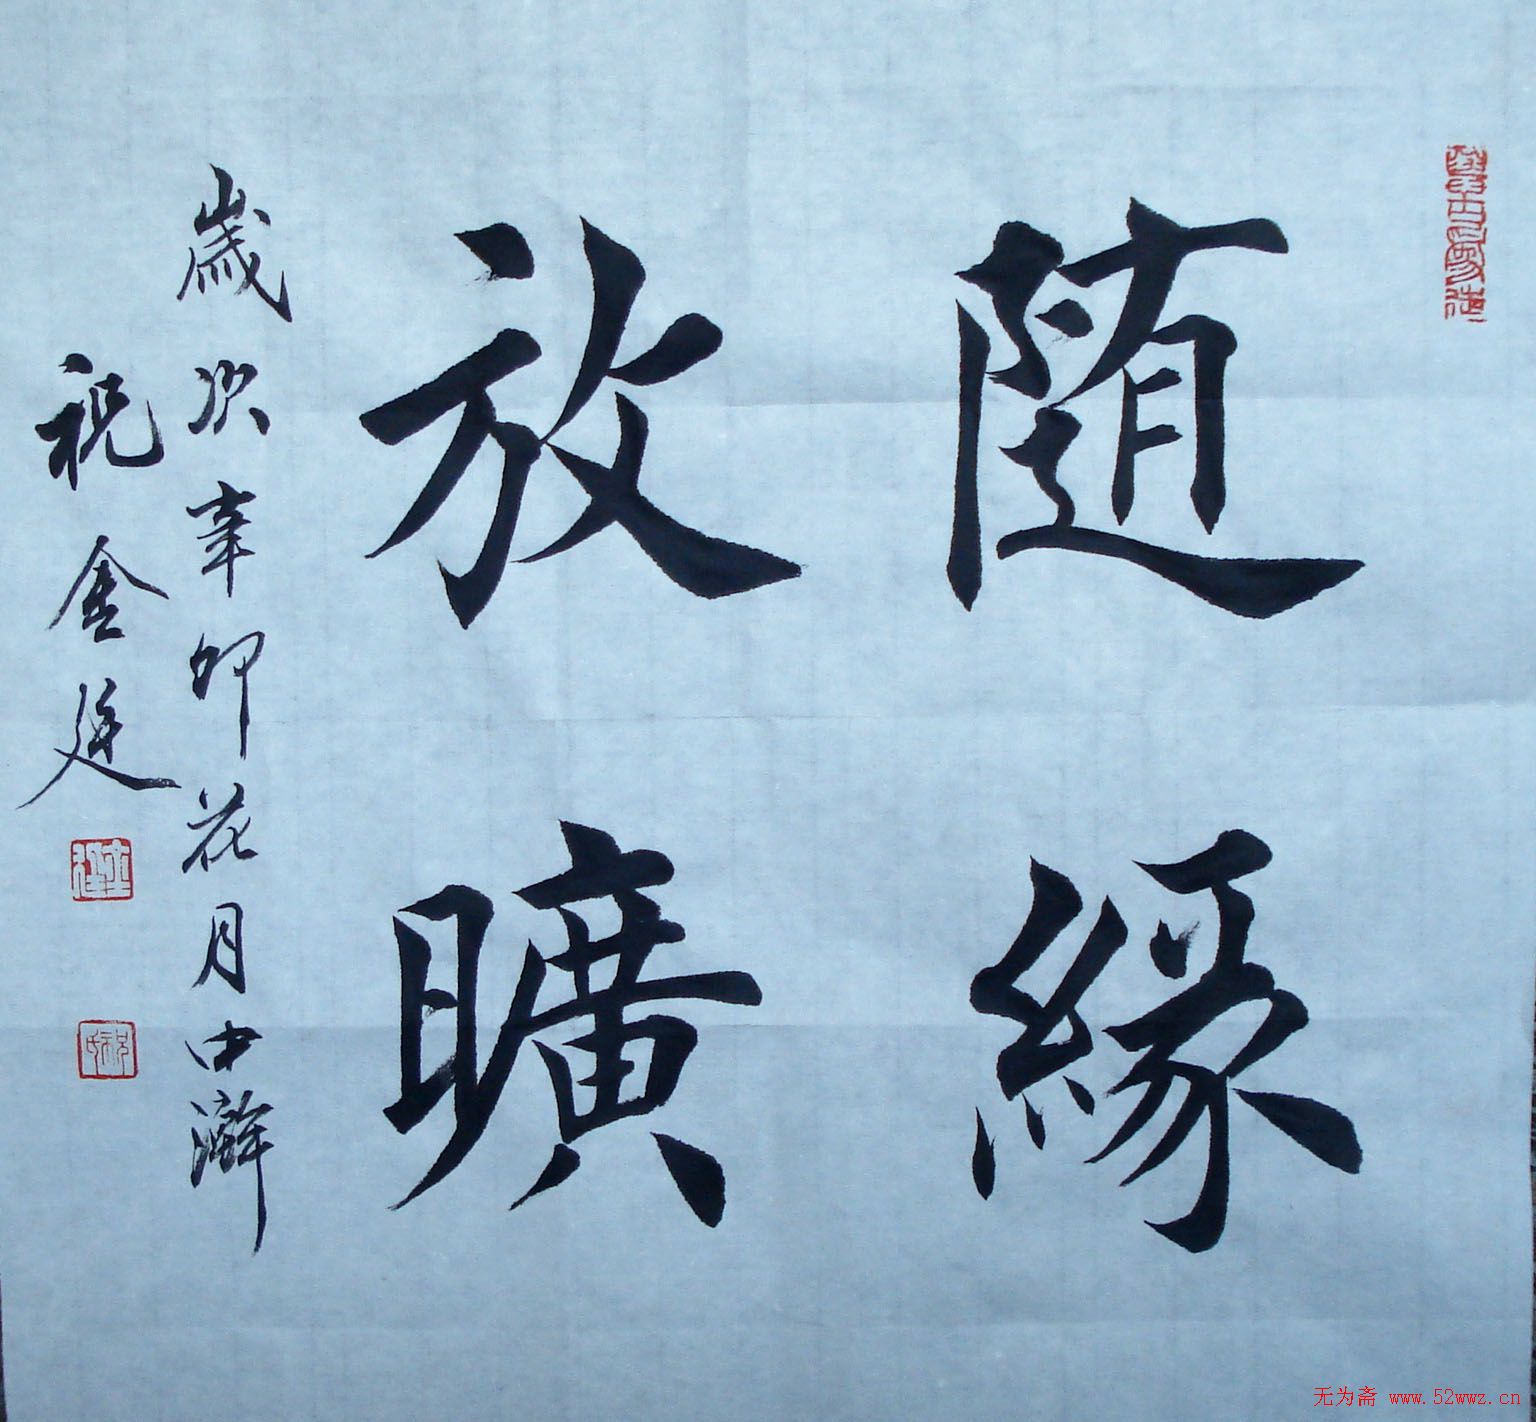 随緣
放曠
歲次辛卯花月中澣
祝金廷
无为斋 www.52wwz.cn